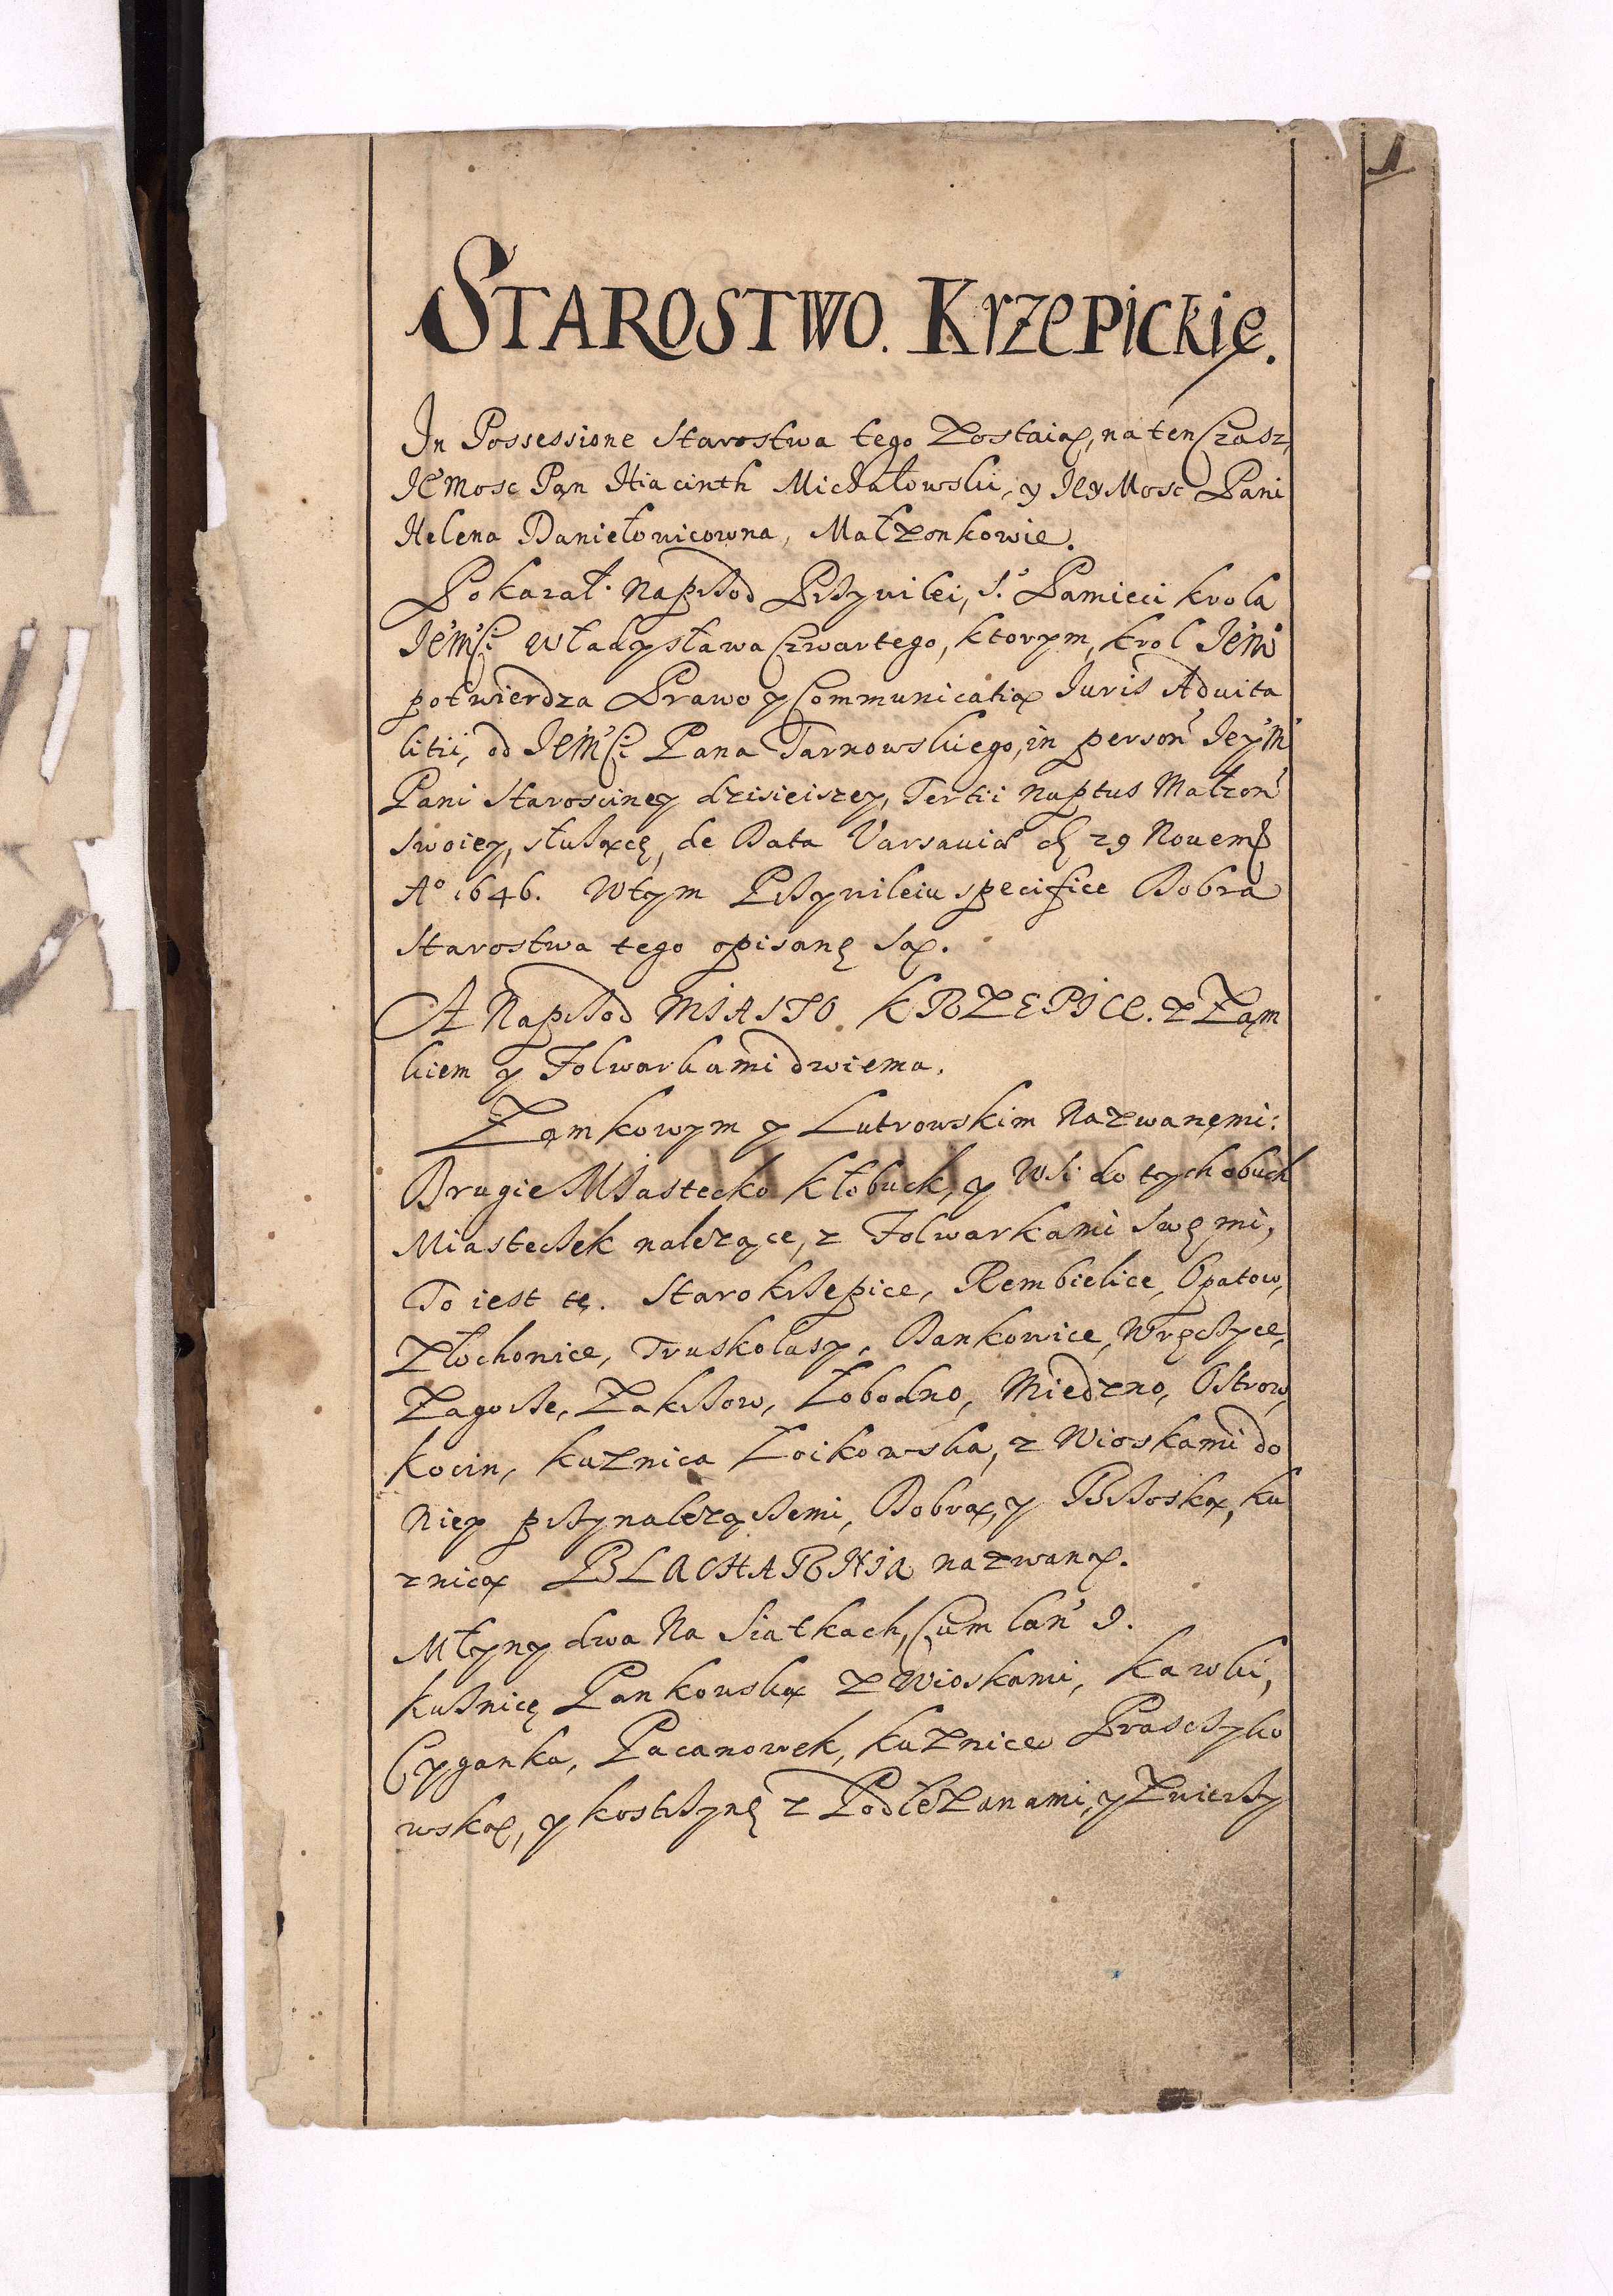 1
STAROSTWO. KrzePickię.
In Possessione Starostwa tego Zostaią, na ten Czasz,
JeMosc Pąn Hiacinth Michałowski, y JeyMosc Pani
Helena Daniełowicowna, Małzonkowie.
Pokazał. Naprzod Przywilei, S. Pamieci krola
JeMści Władysława Czwartego, ktorym, krol JeM
potwierdza Prawo y Communicatią Juris Advita
litii, od JeMści Pana Tarnowskiego, in person Jey M
Pani Starosciney dzisieiszey, Tertii nuptus Małzon
swoiey, słuzącę, de Data Varsaviæ d 29 Novem
Aº 1646. Wtym Przywileiu specifice Dobra
Starostwa tego opisanę są.
A Naprzod MIASTO KRZEPICE. z Ząm
kiem y Folwarkami dwiema.
Ząmkowym y Lutrowskim Nazwanęmi:
Drugie Miastecko kłobuck, y Wsi do tych obuch
Miasteczek nalezące, z Folwarkami swęmi,
To iest tę. Starokrzepice, Rembielice, Opatow,
Złochonice, Truskolasy, Dankowice, Wręczyce,
Zagorze, Zakrzow, Łobodno, Miedzno, Ostrow,
kocin, kuznica Łoikowska, z Wioskami do
Niey przynalezączemi, Dobrą, y Brzoską, ku
znicą BLACHARNIA nazwaną.
Młyny dwa Na Siatkach, Cum lan 9.
kuznicę Pankowską z Wioskami, kawki,
Cyganka, Pacanowek, kuznice Praszczyko
wską, y kostrzynę z Podłęzanami, y Zwierzy